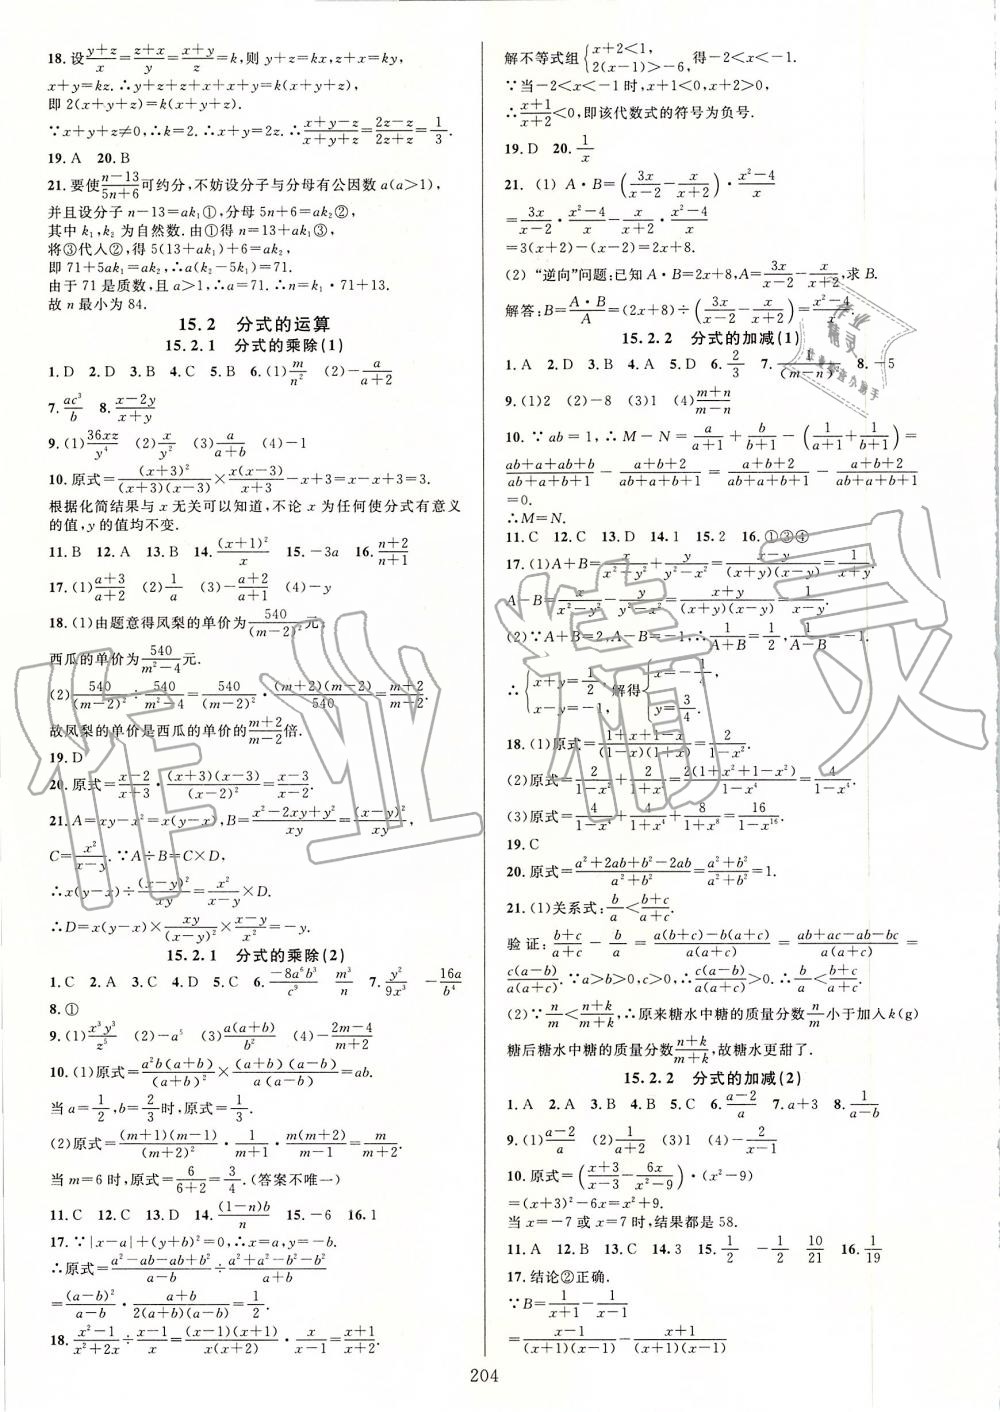 18.设(y+z)/x=(z+x)/y=(x+y)/z=k,则 y+z=kx,z+x=ky,
x+y=kz.∴y+z+z+x+x+y=k(x+y+z),
即 2(x+y+z)=k(x+y+z).
∵x+y+z≠0,∴k=2.∴x+y=2z.∴(x+y-z)/(x+y+z)=(2z-z)/(2z+z)=1/3.
19.A 20.B
21.要使(n-13)/(5n+6)可约分,不妨设分子与分母有公因数 a(a>1),
并且设分子 n-13=ak₁①,分母 5n+6=ak₂②,
其中 k₁,k₂ 为自然数.由①得 n=13+ak₁③,
将③代入②,得 5(13+ak₁)+6=ak₂,
即 71+5ak₁=ak₂,∴a(k₂-5k₁)=71.
由于 71 是质数,且 a>1,∴a=71.∴n=71k₁+13.
故 n 最小为 84.
15.2 分式的运算
15.2.1 分式的乘除(1)
1.D 2.D 3.B 4.C 5.B 6.(1)m/n² (2)-a/(a+2)
7.ac³/b 8.(x-2y)/(x+y)
9.(1)36xz/y⁴ (2)x/y² (3)a/(a+b) (4)-1
10.原式=(x+3)²/((x+3)(x-3))×x(x-3)/(x+3)-x+3=x-x+3=3.
根据化简结果与 x 无关可以知道,不论 x 为任何使分式有意义
的值,y 的值均不变.
11.B 12.A 13.B 14.(x+1)²/x 15.-3a 16.(n+2)/(n+1)
17.(1)(a+3)/(a+2) (2)1/a (3)-(a+2)/(a+1) (4)-y
18.(1)由题意得凤梨的单价为540/(m-2)²元,
西瓜的单价为540/(m²-4)元.
(2)540/(m-2)²÷540/(m²-4)=540/(m-2)²·(m+2)(m-2)/540=(m+2)/(m-2).
故凤梨的单价是西瓜的单价的(m+2)/(m-2)倍.
19.D
20.原式=(x-2)/(x+3)·(x+3)(x-3)/(x-2)²=(x-3)/(x-2).
21.A=xy-x²=x(y-x),B=(x²-2xy+y²)/xy=(x-y)²/xy,
C=x²/(x-y).∵A÷B=C×D,
∴x(y-x)÷(x-y)²/xy=x²/(x-y)×D.
∴D=x(y-x)×xy/(x-y)²×(x-y)/x²=-y.
15.2.1 分式的乘除(2)
1.C 2.A 3.C 4.D 5.C 6.-8a⁶b³/c⁹ m³/n 7.y²/9x³ -16a/b⁴
8.①
9.(1)x³y³/z⁵ (2)-a⁵ (3)a(a+b)/b² (4)-(2m-4)/(m+2)
10.(1)原式=a²b(a+b)/(a+b)²·(a+b)(a-b)/(a(a-b))=ab.
当 a=1/2,b=2/3时,原式=1/3.
(2)原式=(m+1)(m-1)/(m+2)²·1/(m+1)·m(m+2)/(m-1)=m/(m+2).
当 m=6 时,原式=6/(6+2)=3/4.(答案不唯一)
11.C 12.C 13.D 14.(1-n)b/n 15.-6 16.1
17.∵|x-a|+(y+b)²=0,∴x=a,y=-b.
∴原式=(a²-ab-ab+b²)/(a-b)÷(a²+a²-b²+b²)/(a+b)
=(a-b)²/(a-b)·(a+b)/(2(a+b)(a-b))=1/2.
18.(x²-1)/(x²+2x)÷(x-1)/x=(x-1)(x+1)/(x(x+2))·x/(x-1)=(x+1)/(x+2),
解不等式组{x+2<1, 2(x-1)>-6, 得-2<x<-1.
∵当-2<x<-1时,x+1<0,x+2>0,
∴(x+1)/(x+2)<0,即该代数式的符号为负号.
19.D 20.1/x
21.(1)A·B=(3x/(x-2)-x/(x+2))·(x²-4)/x
=3x/(x-2)·(x²-4)/x-x/(x+2)·(x²-4)/x
=3(x+2)-(x-2)=2x+8.
(2)“逆向”问题:已知 A·B=2x+8,A=3x/(x-2)-x/(x+2),求 B.
解答:B=A·B/A=(2x+8)÷(3x/(x-2)-x/(x+2))=(x²-4)/x.
15.2.2 分式的加减(1)
1.A 2.D 3.A 4.C 5.D 6.2/3 7.1/(m-n) 8.-5
9.(1)2 (2)-8 (3)1 (4)(m+n)/(m-n)
10.∵ab=1,∴M-N=a/(a+1)+b/(b+1)-(1/(a+1)+1/(b+1))=
(ab+a+ab+b)/(ab+a+b+1)-(a+b+2)/(ab+a+b+1)=(a+b+2)/(a+b+2)-(a+b+2)/(a+b+2)
=0.
∴M=N.
11.C 12.C 13.D 14.1 15.2 16.①③④
17.(1)A+B=x/(x²-y²)+y/(y²-x²)=(x-y)/((x+y)(x-y))=1/(x+y),
A-B=x/(x²-y²)-y/(y²-x²)=(x+y)/((x+y)(x-y))=1/(x-y).
(2)∵A+B=2,A-B=-1,∴1/(A+B)=1/2,1/(A-B)=-1.
∴{x+y=1/2, x-y=-1. 解得{ y=3/4.
18.(1)原式=(1+x+1-x)/((1-x)(1+x))=2/(1-x²).
(2)原式=2/(1-x²)+2/(1+x²)=2(1+x²+1-x²)/(1-x⁴)=4/(1-x⁴).
(3)原式=4/(1-x⁴)+4/(1+x⁴)+8/(1+x⁸)=16/(1-x¹⁶).
19.C
20.原式=(a²+2ab+b²-2ab)/(a²+b²)=(a²+b²)/(a²+b²)=1.
21.(1)关系式:b/a<(b+c)/(a+c).
验证:(b+c)/(a+c)-b/a=(a(b+c)-b(a+c))/(a(a+c))=(ab+ac-ab-bc)/(a(a+c))=
c(a-b)/(a(a+c)).∵a>b>0,c>0,∴c(a-b)/(a(a+c))>0.∴b/a<(b+c)/(a+c).
(2)∵n/m<(n+k)/(m+k),∴原来糖水中糖的质量分数n/m小于加入k(g)
糖后糖水中糖的质量分数(n+k)/(m+k),故糖水更甜了.
15.2.2 分式的加减(2)
1.A 2.A 3.B 4.C 5.C 6.(a-2)/a 7.a+3 8.1/(a-b)
9.(1)(a-2)/a (2)1/(a+2) (3)1 (4)-2/(x-1)
10.原式=((x+3)/(x-3)-6x/(x²-9))·(x²-9)
=(x+3)²-6x=x²+9.
当 x=-7 或 x=7 时,结果都是 58.
11.A 12.B 13.C 14.3 15.1/2 -1/2 10/21 16.1/19
17.结论②正确.
∵B=1/(x+1)-1/(x-1)
=(x-1)/((x+1)(x-1))-(x+1)/((x+1)(x-1))
204
作业精灵
作业
精灵